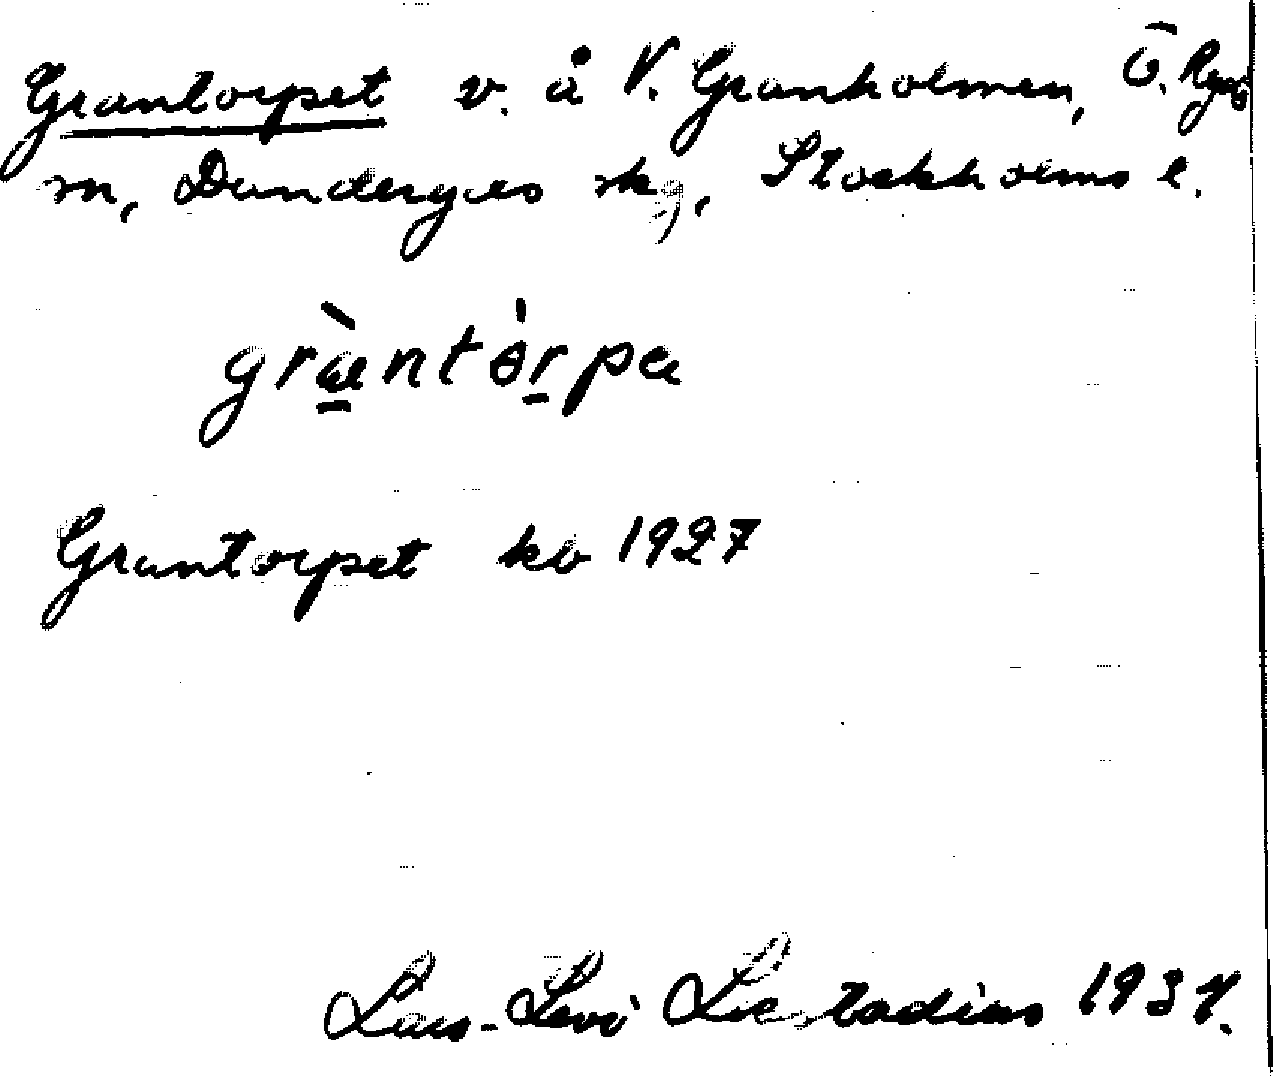 Grantorpet v. å V. Granholmen, Ö. Ryds
sn, Danderyds skg, Stockholms l.
græ̀ntɵ̀rpa
Grantorpet kb 1927
Lars-Levi Læstadius 1934.